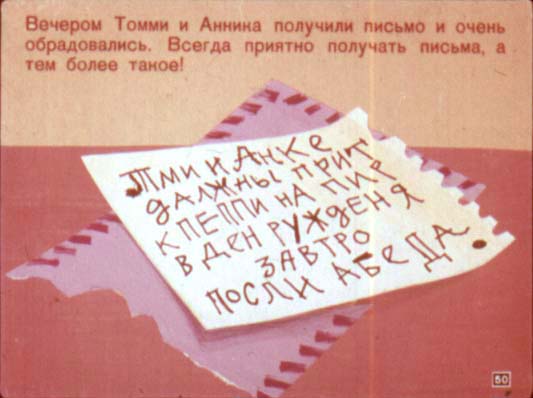 Вечером Томми и Анника получили письмо и очень
обрадовались. Всегда приятно получать письма, а
тем более такое!
ТМИ И АНКЕ
ДАЛЖНЫ ПРИТ
К ПЕППИ НА ПИР
В ДЕН РУЖДЕНЯ
ЗАВТРО
ПОСЛИ АБЕДА
50